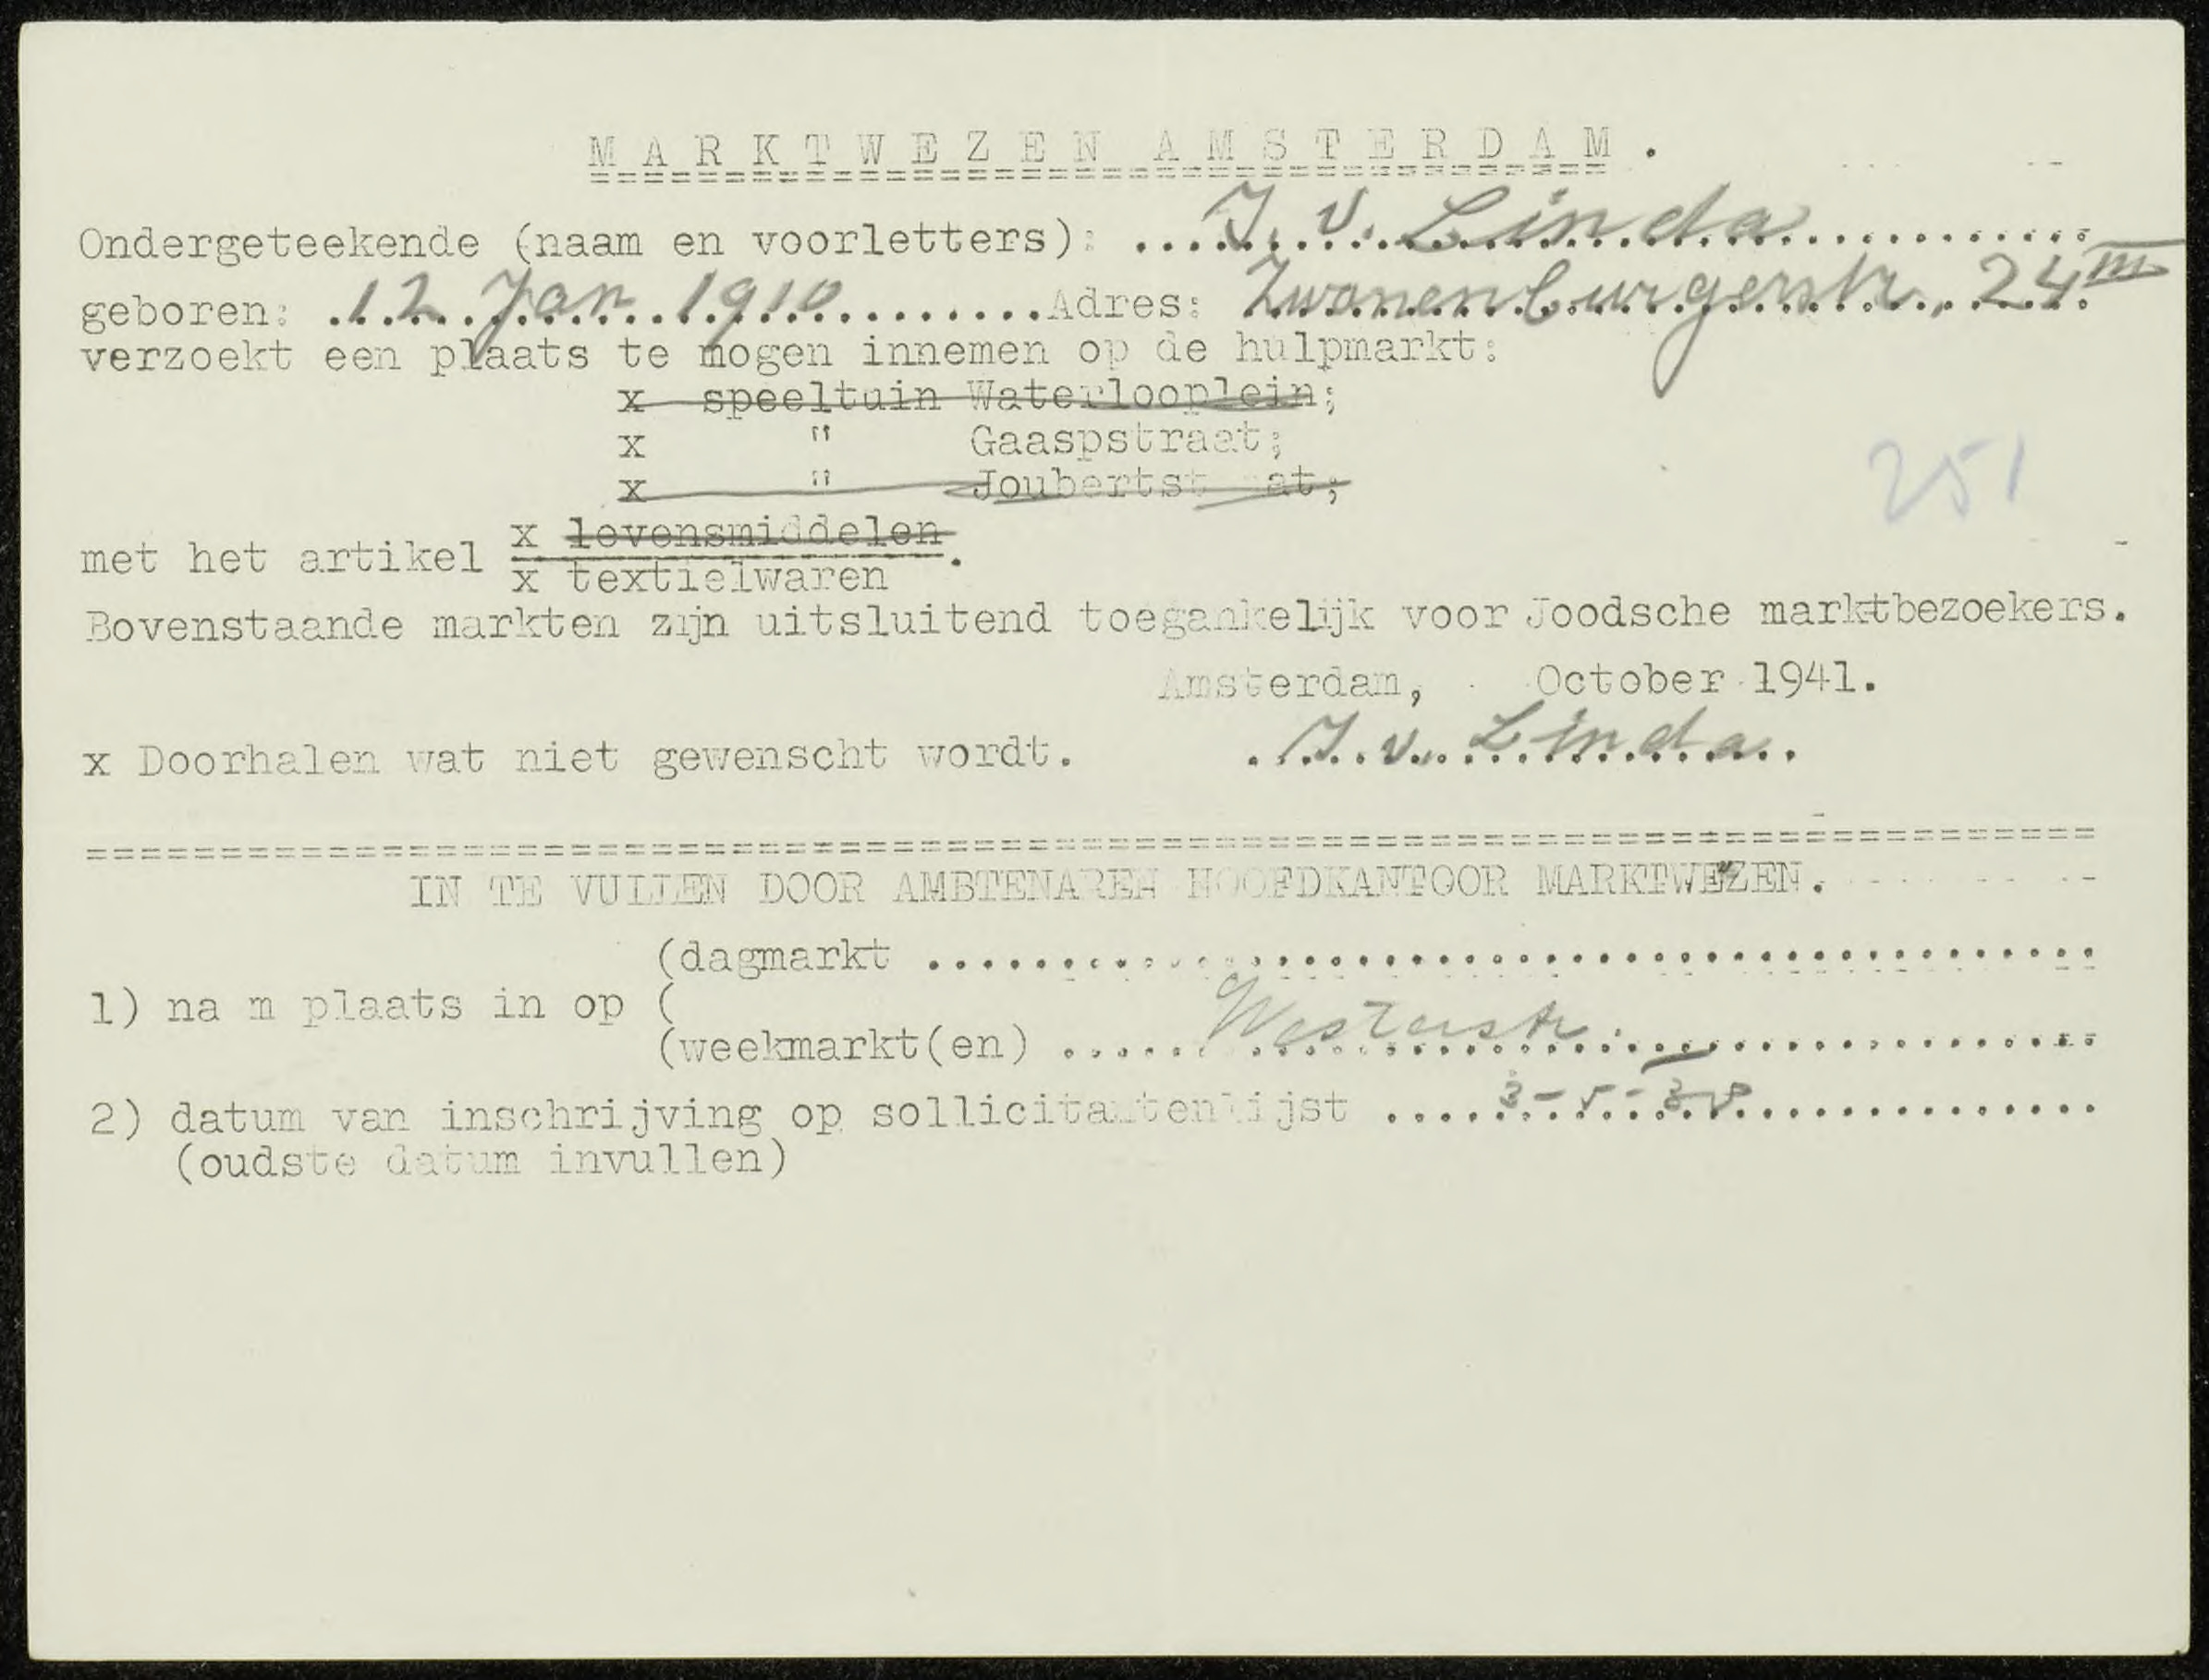 MARKTWEZEN AMSTERDAM.
Ondergeteekende (naam en voorletters): I. v. Linda
geboren: 12 Jan 1910 Adres: Zwanenburgerstr. 24 III
verzoekt een plaats te mogen innemen op de hulpmarkt:
x speeltuin Waterlooplein;
x " Gaaspstraat;
x " Joubertstraat;
x levensmiddelen
met het artikel .
x textielwaren
Bovenstaande markten zijn uitsluitend toegankelijk voor Joodsche marktbezoekers.
251
Amsterdam, October 1941.
x Doorhalen wat niet gewenscht wordt. I. v. Linda
IN TE VULLEN DOOR AMBTENAREN HOOFDKANTOOR MARKTWEZEN.
(dagmarkt
1) na m plaats in op (
(weekmarkt(en) Westerstr.
2) datum van inschrijving op sollicitantenlijst 3-5-38
(oudste datum invullen)